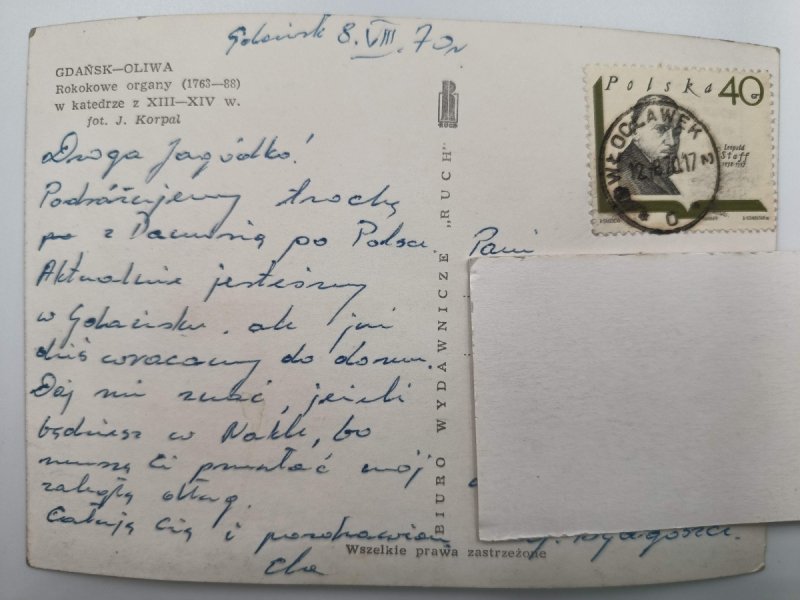 Gdańsk 8.VIII.70r
GDAŃSK—OLIWA
Rokokowe organy (1763—88)
w katedrze z XIII—XIV w.
fot. J. Korpal
Droga Jagódko!
Podróżujemy trochę
po z Danusią po Polsce.
Aktualnie jesteśmy
w Gdańsku, ale już
dziś wracamy do domu.
Daj mi znać, jeżeli
będziesz w Nakle, bo
muszę Ci przesłać mój
zaległy dług.
Całuję Cię i pozdrawiam
Ela
BIURO WYDAWNICZE „RUCH"
RUCH
Wszelkie prawa zastrzeżone
Polska 40
Leopold
Staff
WŁOCŁAWEK 2
Pani
Bydgoszcz.